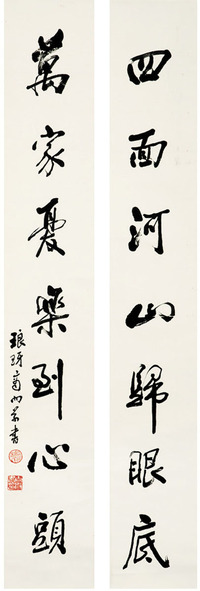 四面河山歸眼底
萬家憂樂到心頭
琅玡商向前書